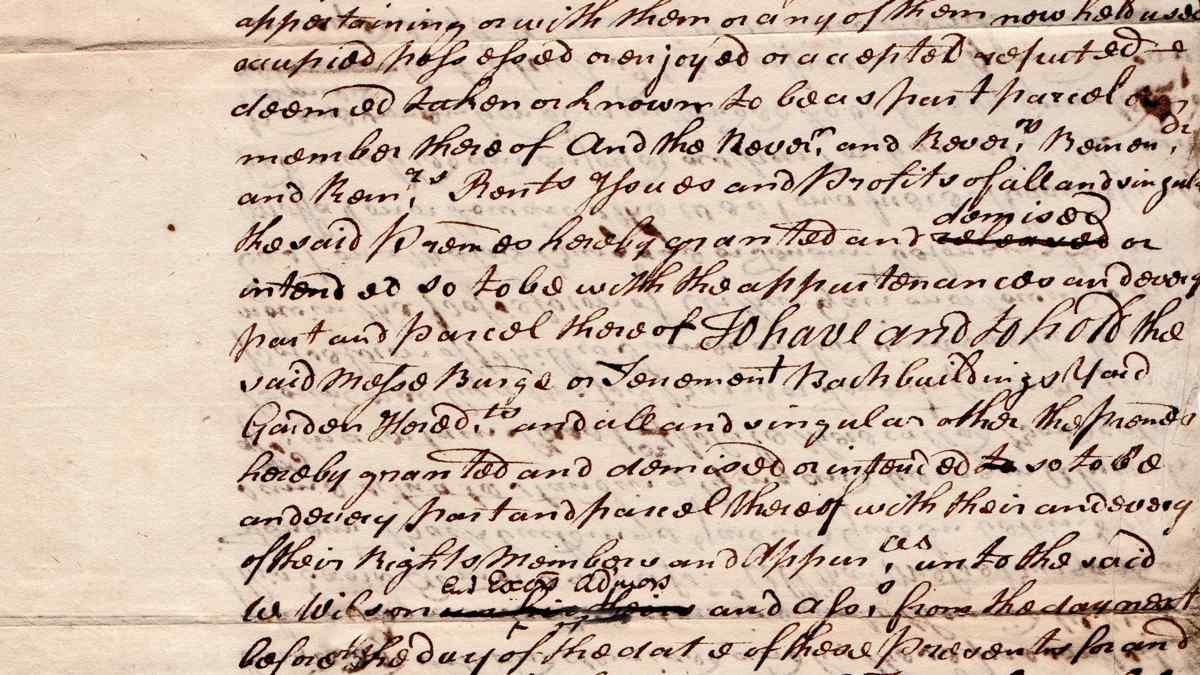 appertaining or with them or any of them now held used
occupied possessed or enjoyed or accepted reputed
deemed taken or known to be as part parcel or
member there of And the Rever.n and Rever.ns Remen.dr
and Rem.rs Rents Issues and Profits of all and singular
the said Prem̄es hereby granted and demised or
intended so to be with the appurtenances and every
part and parcel there of To have and to hold the
said Messe Burge or Tenement Backbuildings Yard
Garden Hered.ts and all and singular other the premes
hereby granted and demised or intended so to be
and every part and parcel there of with their and every
of their Rights Members and Appur.ces unto the said
W Wilson Exōrs Admors and ass.s from the day next
before the day of the date of these Presents for and